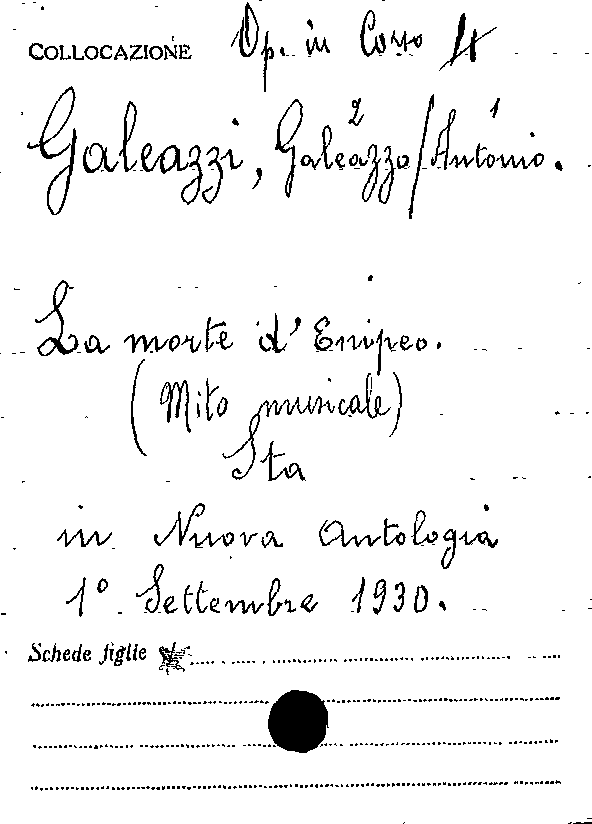 COLLOCAZIONE Op. in Corso 4
Galeazzi, Galeazzo/Antonio.
2 1
La morte d'Enipeo.
(Mito musicale)
Sta
in Nuova Antologia
1° Settembre 1930.
Schede figlie